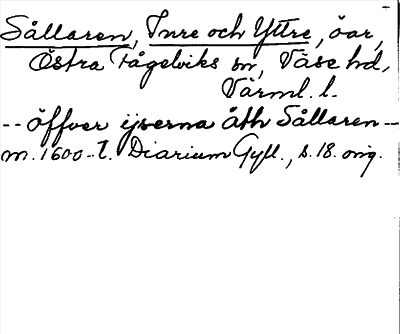 Sållaren, Inre och Yttre, öar,
Östra Fågelviks sn, Väse hd,
Värml. l.
-- öffver ijserna åth Sållaren --
m. 1600-t. Diarium Gyll., s. 18. orig.